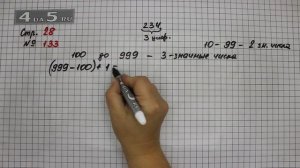 4DA5.RU
Стр. 28
№ 133
234
3 циф.
10 - 99 - 2 зн. числа
100 до 999 - 3-значные числа
(999-100)+1